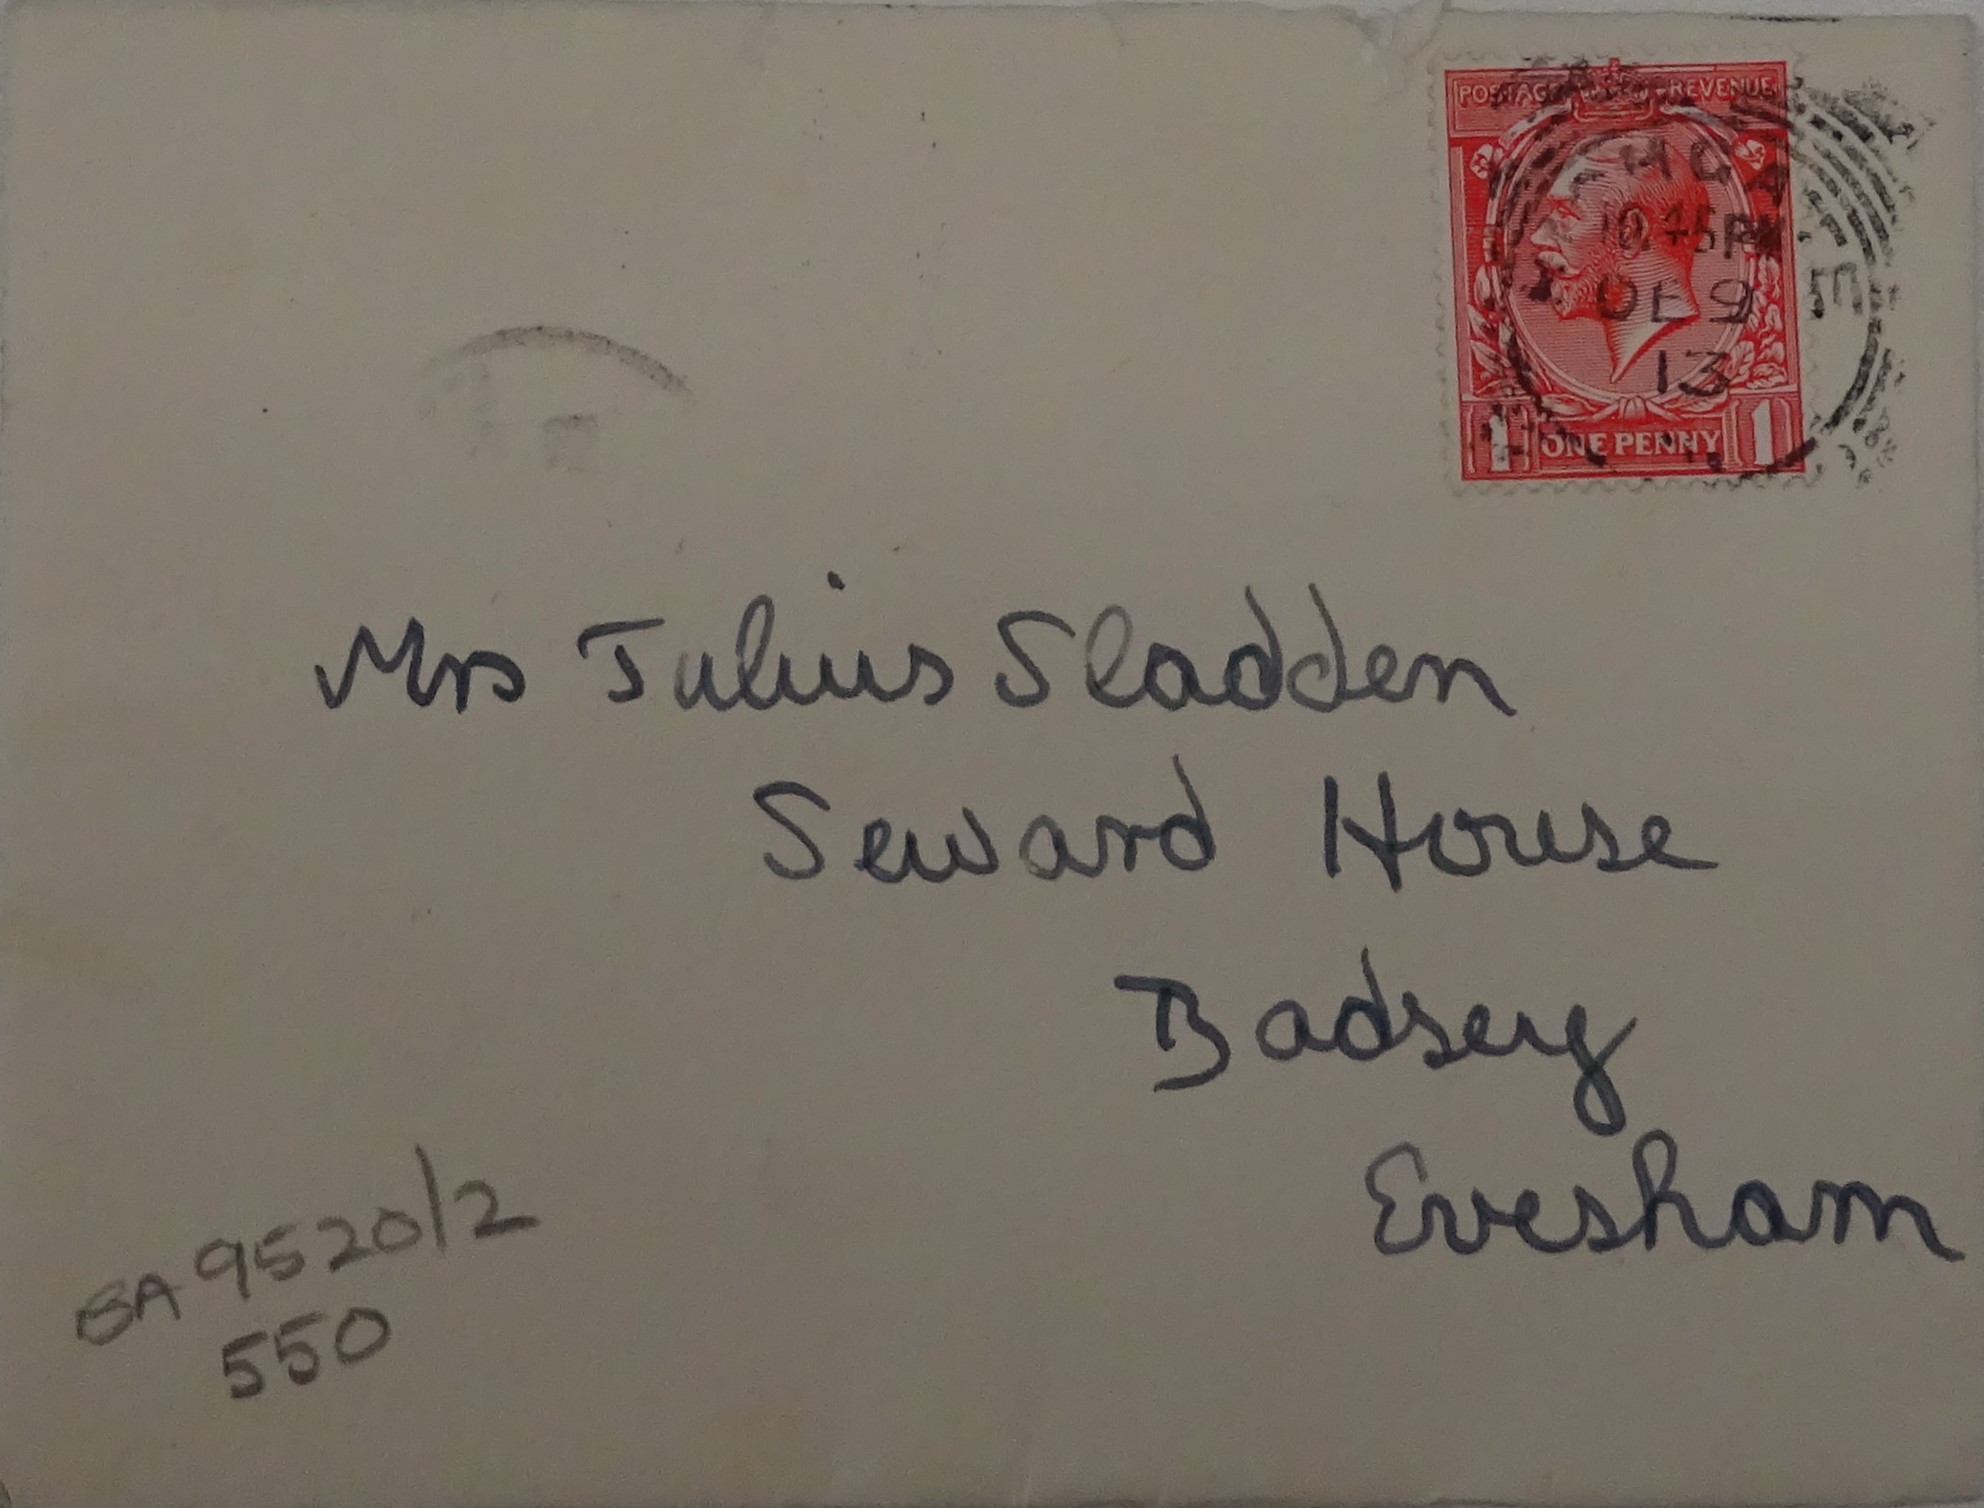 POSTAGE REVENUE
10.45PM
DE 9
13
1 ONE PENNY 1
Mrs Julius Sladden
Seward House
Badsey
Evesham
BA 9520/2
550